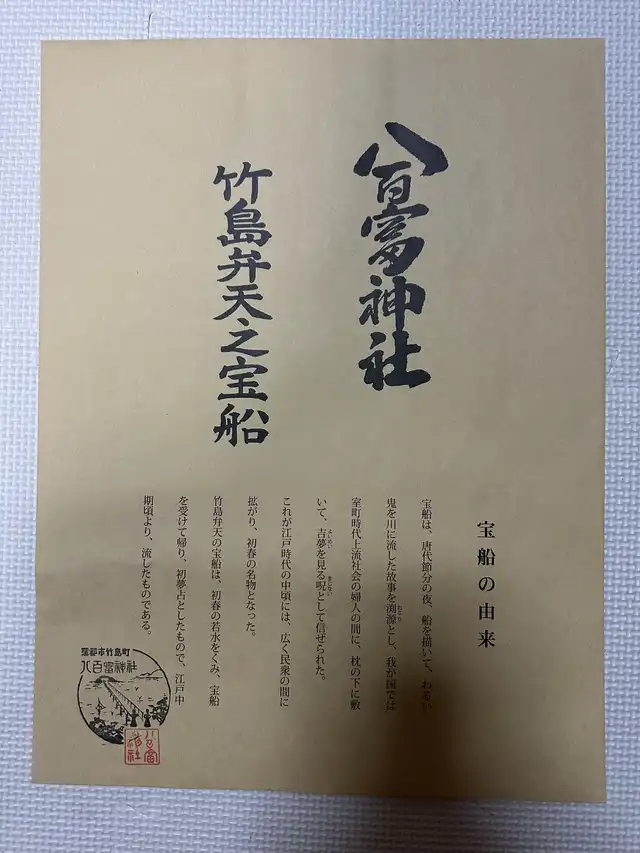 八百富神社
竹島弁天之宝船
宝船の由来
宝船は、唐代節分の夜、船を描いて、わるい
鬼を川に流した故事を渕源とし、我が国では
室町時代上流社会の婦人の間に、枕の下に敷
いて、吉夢を見る呪として信ぜられた。
これが江戸時代の中頃には、広く民衆の間に
拡がり、初春の名物となった。
竹島弁天の宝船は、初春の若水をくみ、宝船
を受けて帰り、初夢占としたもので、江戸中
期頃より、流したものである。
蒲郡市竹島町
八百富神社